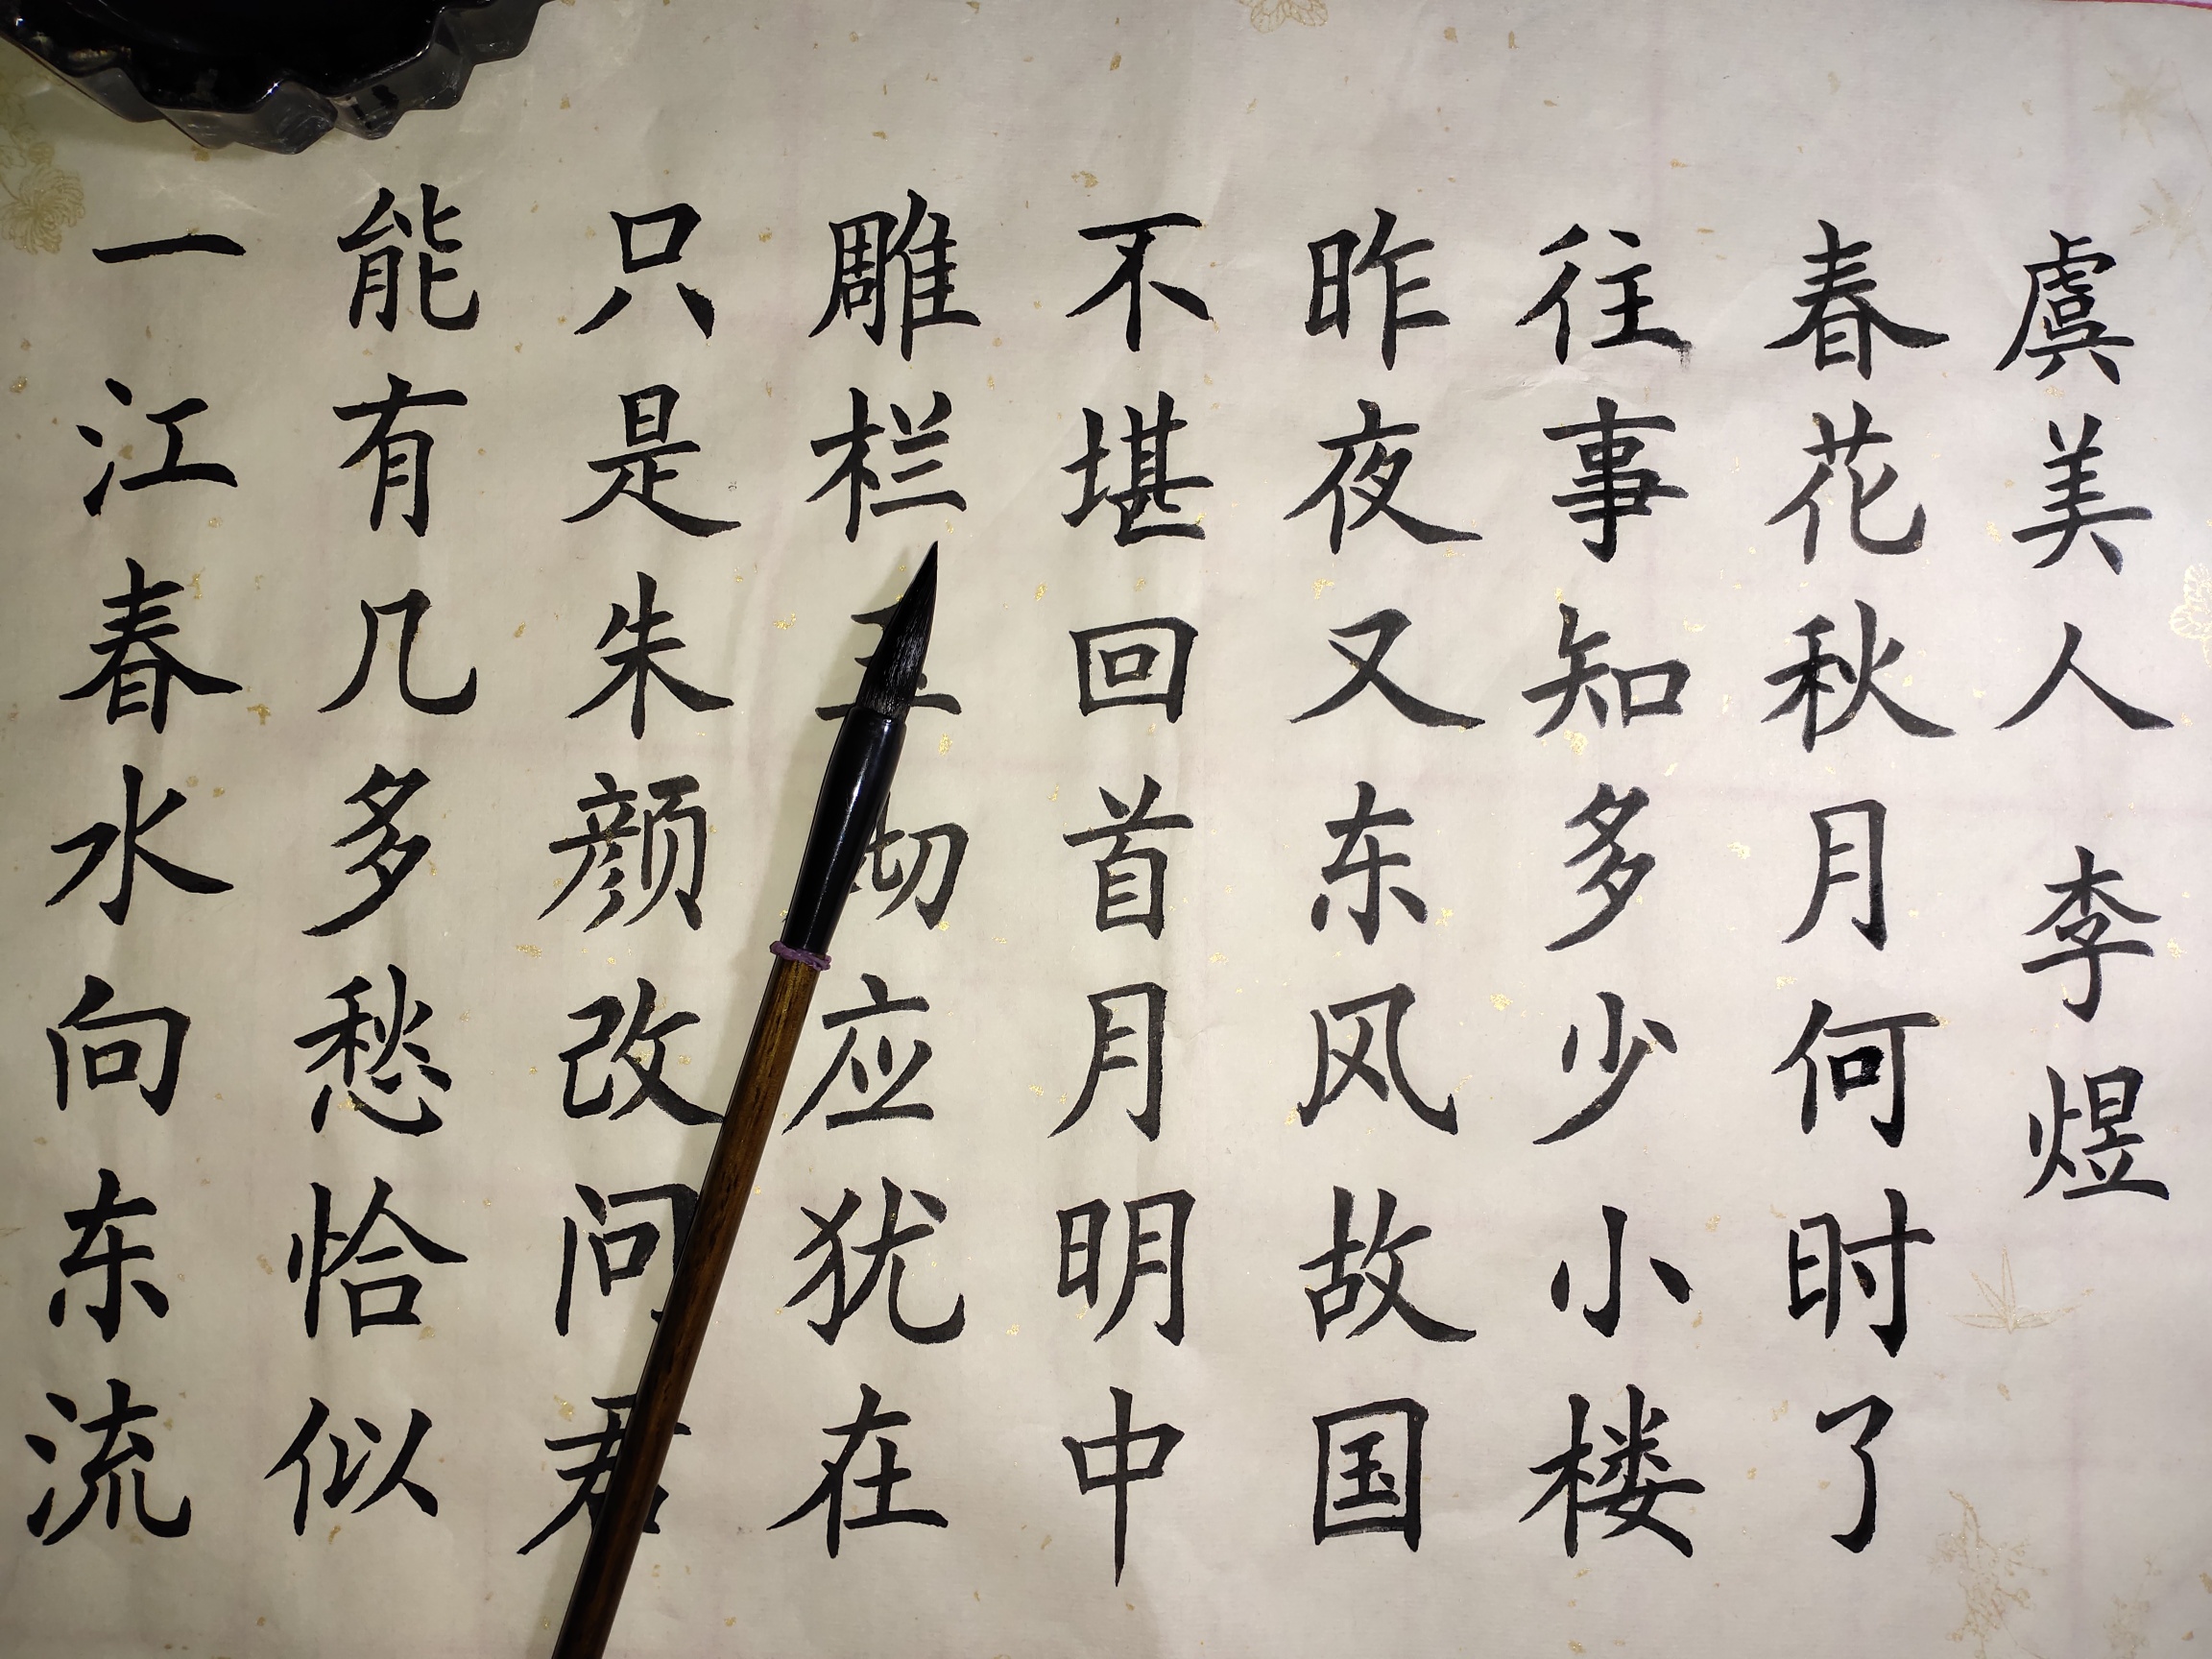 虞美人 李煜
春花秋月何时了
往事知多少小楼
昨夜又东风故国
不堪回首月明中
雕栏玉砌应犹在
只是朱颜改问君
能有几多愁恰似
一江春水向东流